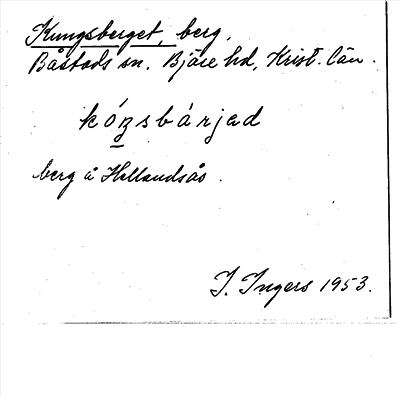 Kungsberget, berg,
Båstads sn. Bjäre hd, Krist. län.
kózsbárjad
berg å Hallandsås.
I. Ingers 1953.